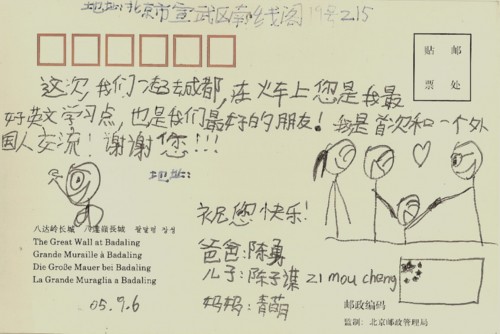 地址:北京市宣武区南线阁19号215
贴 邮
票 处
这次,我们一起去成都,在火车上您是我最
好英文学习点,也是我们最好的朋友!我是首次和一个外
国人交流!谢谢您!!!
地址:
祝您快乐!
爸爸:陈勇
儿子:陈子谋 zi mou cheng
妈妈:青萌
八达岭长城 八達嶺長城 팔달령 장성
The Great Wall at Badaling
Grande Muraille à Badaling
Die Große Mauer bei Badaling
La Grande Muraglia a Badaling
05.9.6
邮政编码
监制:北京邮政管理局